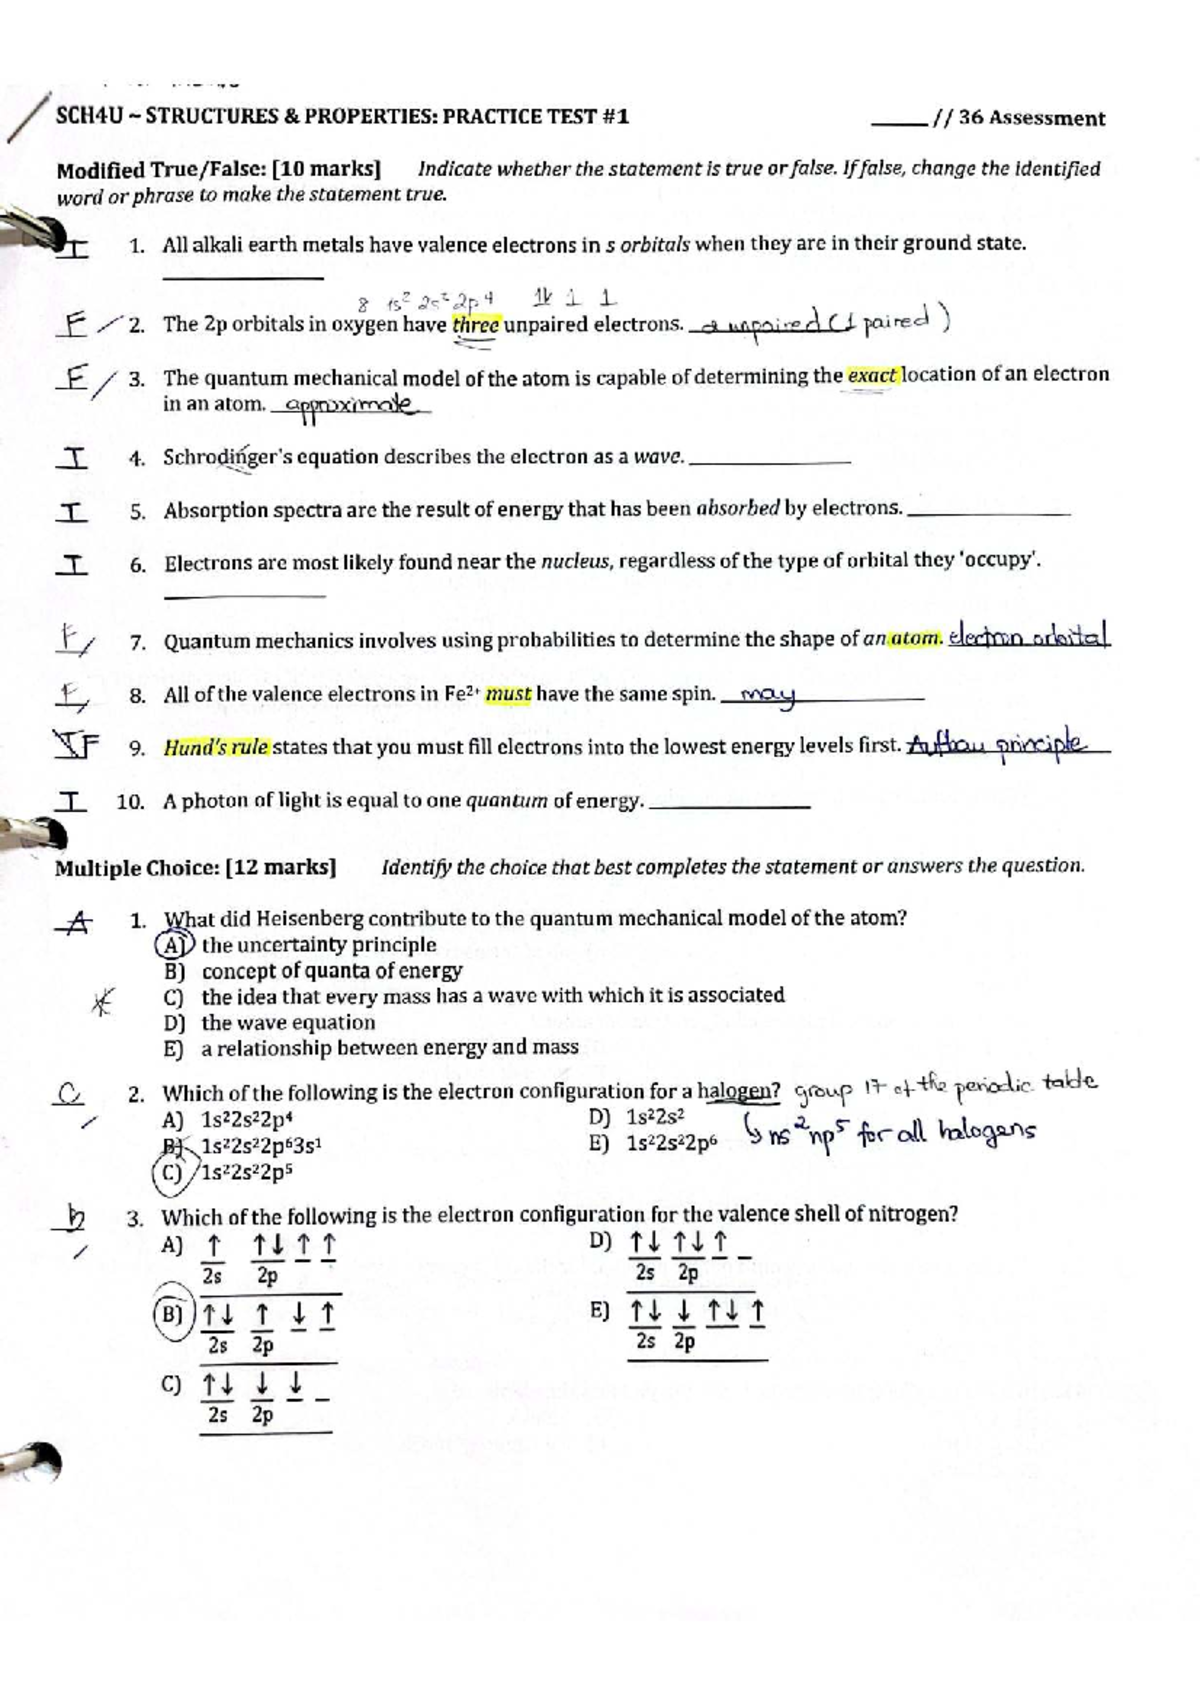 SCH4U ~ STRUCTURES & PROPERTIES: PRACTICE TEST #1 _____ // 36 Assessment
Modified True/False: [10 marks] Indicate whether the statement is true or false. If false, change the identified
word or phrase to make the statement true.
T 1. All alkali earth metals have valence electrons in s orbitals when they are in their ground state.
8 1s² 2s² 2p⁴ 1k 1 1
F 2. The 2p orbitals in oxygen have three unpaired electrons. 2 unpaired (1 paired)
F 3. The quantum mechanical model of the atom is capable of determining the exact location of an electron
in an atom. approximate
T 4. Schrodinger's equation describes the electron as a wave.
T 5. Absorption spectra are the result of energy that has been absorbed by electrons.
T 6. Electrons are most likely found near the nucleus, regardless of the type of orbital they 'occupy'.
F 7. Quantum mechanics involves using probabilities to determine the shape of an atom. electron orbital
F 8. All of the valence electrons in Fe²⁺ must have the same spin. may
F 9. Hund's rule states that you must fill electrons into the lowest energy levels first. Aufbau principle
T 10. A photon of light is equal to one quantum of energy.
Multiple Choice: [12 marks] Identify the choice that best completes the statement or answers the question.
A 1. What did Heisenberg contribute to the quantum mechanical model of the atom?
A) the uncertainty principle
B) concept of quanta of energy
C) the idea that every mass has a wave with which it is associated
D) the wave equation
E) a relationship between energy and mass
C 2. Which of the following is the electron configuration for a halogen? group 17 of the periodic table
A) 1s²2s²2p⁴ D) 1s²2s²
B) 1s²2s²2p⁶3s¹ E) 1s²2s²2p⁶ ↳ ns²np⁵ for all halogens
C) 1s²2s²2p⁵
b 3. Which of the following is the electron configuration for the valence shell of nitrogen?
A) ↑ ↑↓ ↑ ↑ D) ↑↓ ↑↓ ↑ _
2s 2p 2s 2p
B) ↑↓ ↑ ↓ ↑ E) ↑↓ ↓ ↑↓ ↑
2s 2p 2s 2p
C) ↑↓ ↓ ↓ _
2s 2p